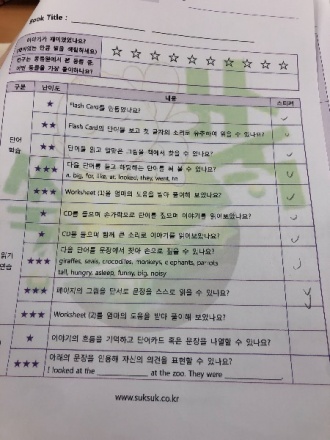 Book Title :
이야기가 재미있었나요?
재미있는 만큼 별을 색칠하세요!
☆ ☆ ☆ ☆ ☆ ☆ ☆ ☆ ☆ ☆
구분 난이도 내용 스티커
단어
학습
★ Flash Card를 만들었나요?
★★ Flash Card의 단어를 보고 첫 글자의 소리로 유추하여 읽을 수 있나요?
★★ 단어를 읽고 알맞은 그림을 책에서 찾을 수 있나요?
★★★ 다음 단어를 듣고 해당하는 단어를 써 볼 수 있나요?
a, big, for, like, at, looked, they, went, to
★★★ Worksheet (1)을 엄마의 도움을 받아 풀어 보았나요?
읽기
연습
★ CD를 들으며 손가락으로 단어를 짚으며 이야기를 읽어보았나요?
★ CD를 들으며 함께 큰 소리로 이야기를 읽어보았나요?
★★★ 다음 단어를 문장에서 찾아 손으로 짚을 수 있나요?
giraffes, seals, crocodiles, monkeys, elephants, parrots
tall, hungry, asleep, funny, big, noisy
★★★ 페이지의 그림을 단서로 문장을 스스로 읽을 수 있나요?
★★★ Worksheet (2)를 엄마의 도움을 받아 풀어 보았나요?
★ 이야기의 흐름을 기억하고 단어카드 혹은 문장을 나열할 수 있나요?
★★★ 아래의 문장을 인용해 자신의 의견을 표현할 수 있나요?
I looked at the ________ at the zoo. They were ________
www.suksuk.co.kr